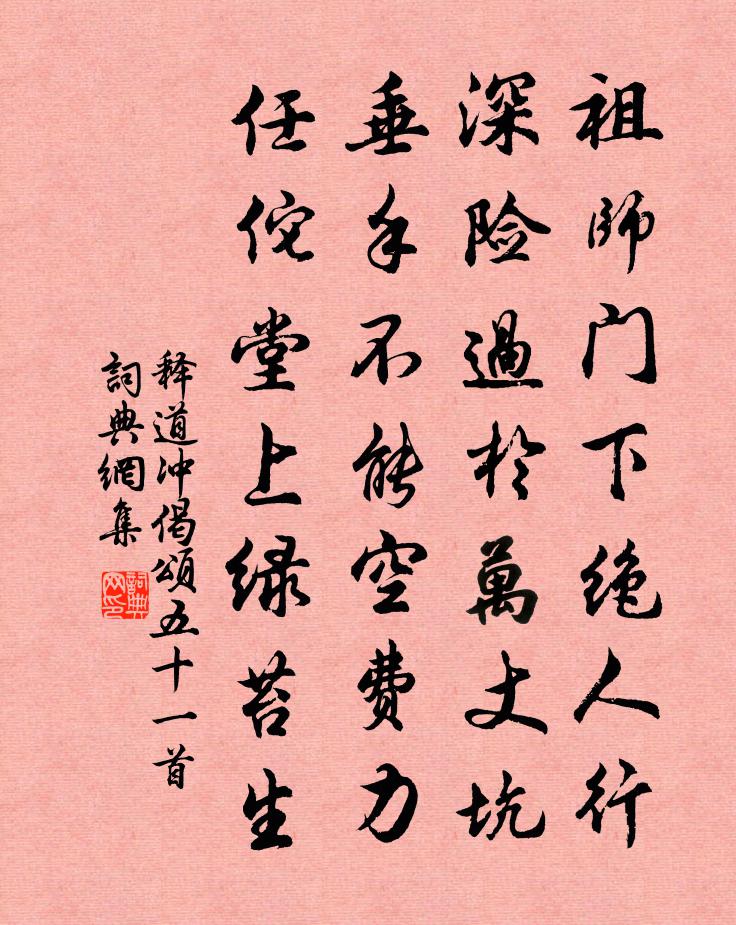 祖師门下绝人行
深险過於萬丈坑
垂手不能空费力
任佗堂上绿苔生
释道冲偈颂五十一首
詞典網集
詞典网印